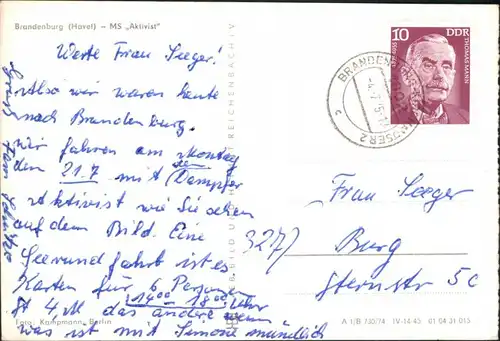 Brandenburg (Havel) – MS „Aktivist"
Werte Frau Seeger!
Also wir waren heute
nach Brandenburg.
wir fahren am Montag
den 21.7 mit Dampfer
Aktivist wie Sie sehen
auf dem Bild. Eine
Seerundfahrt ist es
Karten für 6 Personen
4,M das andere wenn
1400 – 18 00 Uhr
was ist mit Simone mündlich
Gruß
Fam
Foto: Kampmann, Berlin
REICHENBACH I V
10
DDR
THOMAS MANN
1875-1955
BRANDENBURG
c
2
Frau Seeger
3277 Burg
Sternstr 5c
A 1/B 730/74 IV-14-45 01 04 31 015